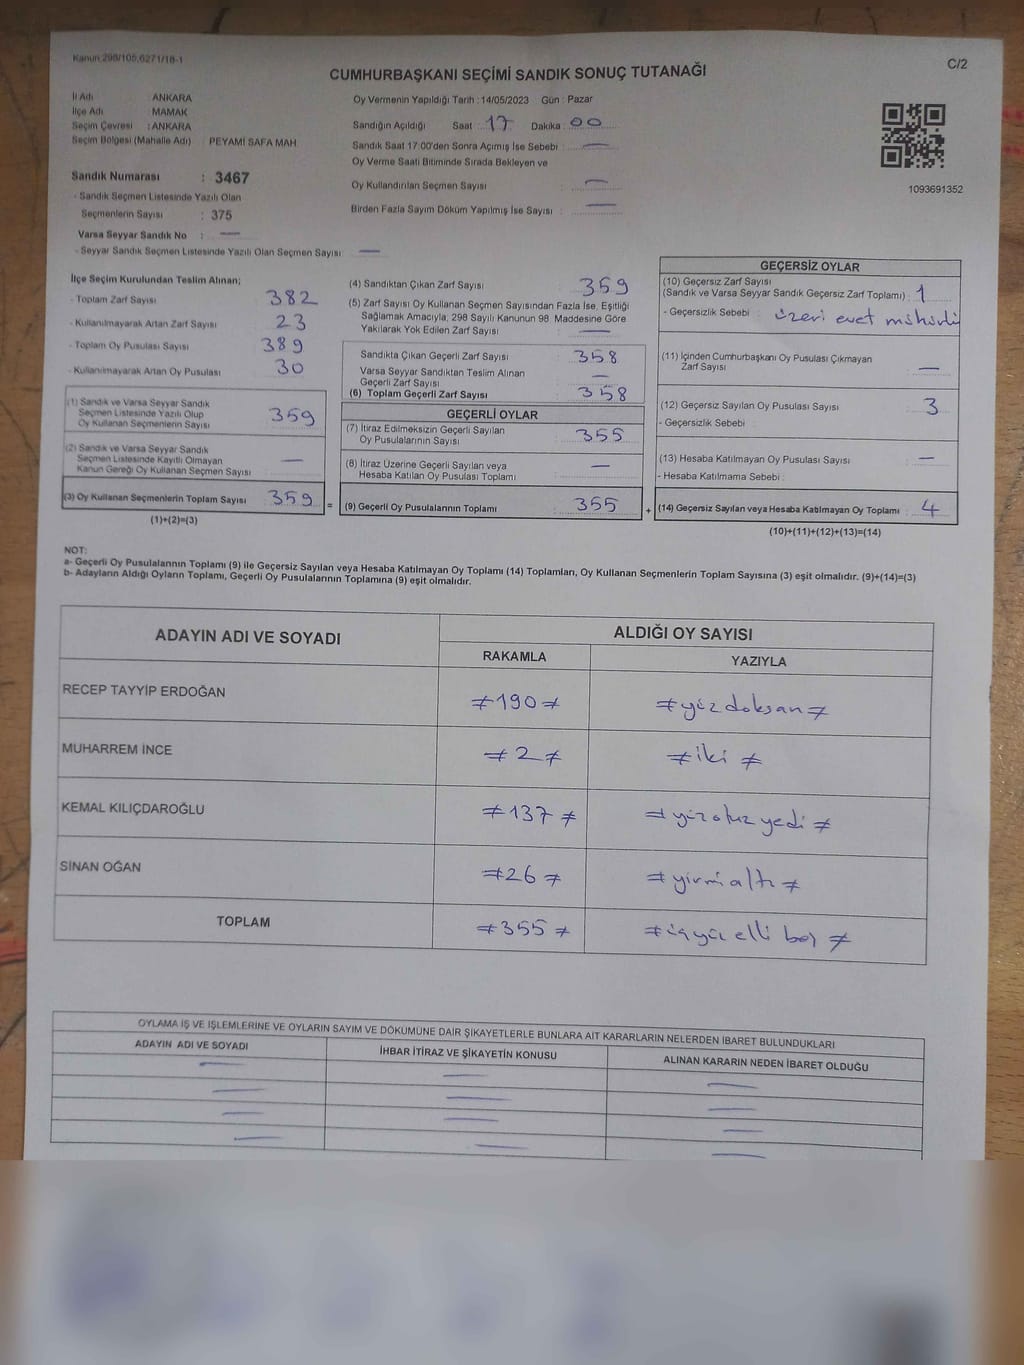 Kanun:298/105,6271/18-1
C/2
CUMHURBAŞKANI SEÇİMİ SANDIK SONUÇ TUTANAĞI
İl Adı ANKARA
İlçe Adı MAMAK
Seçim Çevresi : ANKARA
Seçim Bölgesi (Mahalle Adı) : PEYAMİ SAFA MAH
Sandık Numarası : 3467
- Sandık Seçmen Listesinde Yazılı Olan
Seçmenlerin Sayısı : 375
Varsa Seyyar Sandık No : —
- Seyyar Sandık Seçmen Listesinde Yazılı Olan Seçmen Sayısı —
Oy Vermenin Yapıldığı Tarih : 14/05/2023 Gün : Pazar
Sandığın Açıldığı Saat : 17 Dakika : 00
Sandık Saat 17:00'den Sonra Açımış İse Sebebi : —
Oy Verme Saati Bitiminde Sırada Bekleyen ve
Oy Kullandırılan Seçmen Sayısı : —
Birden Fazla Sayım Döküm Yapılmış İse Sayısı : —
1093691352
İlçe Seçim Kurulundan Teslim Alınan;
- Toplam Zarf Sayısı 382
- Kullanılmayarak Artan Zarf Sayısı 23
- Toplam Oy Pusulası Sayısı 389
- Kullanılmayarak Artan Oy Pusulası 30
(1) Sandık ve Varsa Seyyar Sandık
Seçmen Listesinde Yazılı Olup
Oy Kullanan Seçmenlerin Sayısı 359
(2) Sandık ve Varsa Seyyar Sandık
Seçmen Listesinde Kayıtlı Olmayan
Kanun Gereği Oy Kullanan Seçmen Sayısı —
(3) Oy Kullanan Seçmenlerin Toplam Sayısı 359 =
(1)+(2)=(3)
(4) Sandıktan Çıkan Zarf Sayısı : 359
(5) Zarf Sayısı Oy Kullanan Seçmen Sayısından Fazla İse, Eşitliği
Sağlamak Amacıyla, 298 Sayılı Kanunun 98. Maddesine Göre
Yakılarak Yok Edilen Zarf Sayısı : —
Sandıkta Çıkan Geçerli Zarf Sayısı : 358
Varsa Seyyar Sandıktan Teslim Alınan
Geçerli Zarf Sayısı : —
(6) Toplam Geçerli Zarf Sayısı : 358
GEÇERLİ OYLAR
(7) İtiraz Edilmeksizin Geçerli Sayılan
Oy Pusulalarının Sayısı : 355
(8) İtiraz Üzerine Geçerli Sayılan veya
Hesaba Katılan Oy Pusulası Toplamı : —
(9) Geçerli Oy Pusulalarının Toplamı : 355 +
GEÇERSİZ OYLAR
(10) Geçersiz Zarf Sayısı
(Sandık ve Varsa Seyyar Sandık Geçersiz Zarf Toplamı) : 1
- Geçersizlik Sebebi : üzeri evet mühürlü
(11) İçinden Cumhurbaşkanı Oy Pusulası Çıkmayan
Zarf Sayısı : —
(12) Geçersiz Sayılan Oy Pusulası Sayısı : 3
- Geçersizlik Sebebi :
(13) Hesaba Katılmayan Oy Pusulası Sayısı : —
- Hesaba Katılmama Sebebi :
(14) Geçersiz Sayılan veya Hesaba Katılmayan Oy Toplamı : 4
(10)+(11)+(12)+(13)=(14)
NOT:
a- Geçerli Oy Pusulalarının Toplamı (9) ile Geçersiz Sayılan veya Hesaba Katılmayan Oy Toplamı (14) Toplamları, Oy Kullanan Seçmenlerin Toplam Sayısına (3) eşit olmalıdır. (9)+(14)=(3)
b- Adayların Aldığı Oyların Toplamı, Geçerli Oy Pusulalarının Toplamına (9) eşit olmalıdır.
ADAYIN ADI VE SOYADI ALDIĞI OY SAYISI
RAKAMLA YAZIYLA
RECEP TAYYİP ERDOĞAN ≠190≠ ≠yüz doksan≠
MUHARREM İNCE ≠2≠ ≠iki≠
KEMAL KILIÇDAROĞLU ≠137≠ ≠yüz otuz yedi≠
SİNAN OĞAN ≠26≠ ≠yirmi altı≠
TOPLAM ≠355≠ ≠üçyüz elli beş≠
OYLAMA İŞ VE İŞLEMLERİNE VE OYLARIN SAYIM VE DÖKÜMÜNE DAİR ŞİKAYETLERLE BUNLARA AİT KARARLARIN NELERDEN İBARET BULUNDUKLARI
ADAYIN ADI VE SOYADI İHBAR İTİRAZ VE ŞİKAYETİN KONUSU ALINAN KARARIN NEDEN İBARET OLDUĞU